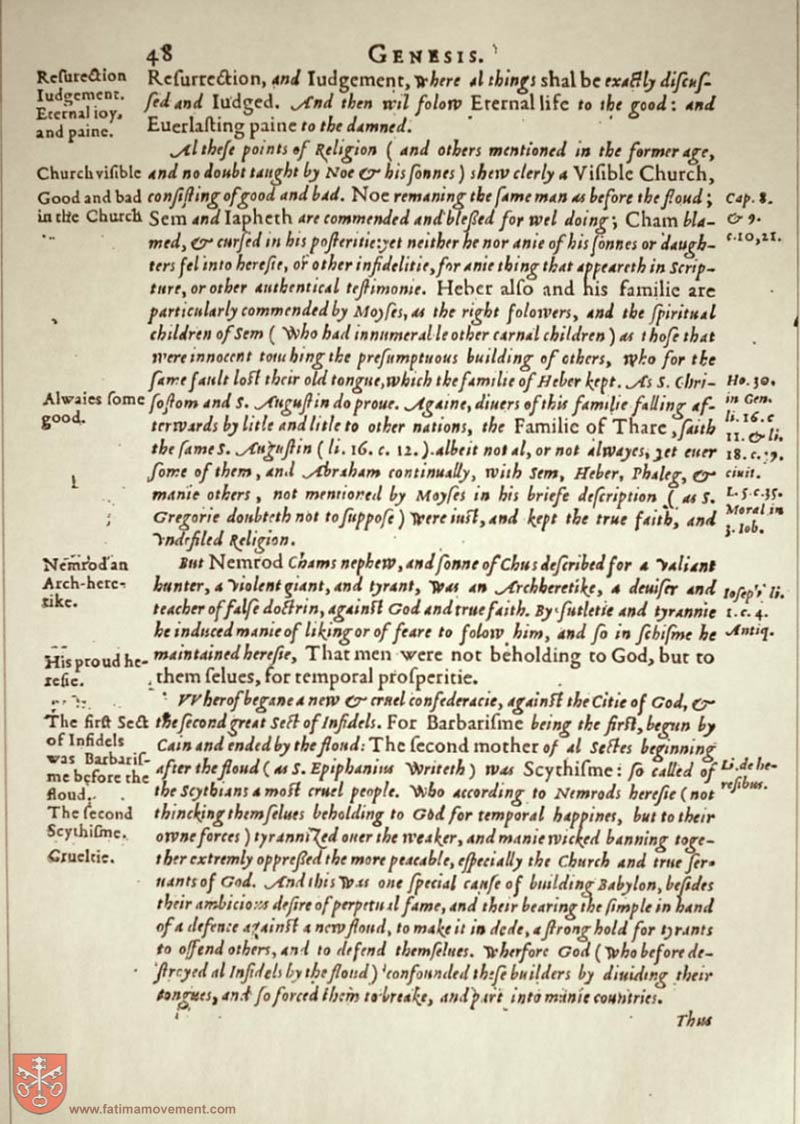 48 GENESIS.
Reſurection
Iudgement.
Eternal ioy,
and paine.
Reſurrection, and Iudgement, where al things shal be exactly diſcuſ-
ſed and Iudged. And then wil folow Eternal life to the good: and
Euerlaſting paine to the damned.
Al theſe points of Religion (and others mentioned in the former age,
Church viſible
and no doubt taught by Noe & his ſonnes) shew clerly a Viſible Church,
Good and bad
in the Church
conſiſting of good and bad. Noe remaning the same man as before the floud;
Cap. 8.
& 9.
c.10,21.
Sem and Iapheth are commended and bleſſed for wel doing; Cham bla-
med, & curſed in his poſteritie: yet neither he nor anie of his ſonnes or daugh-
ters fel into hereſie, or other infidelitie, for anie thing that appeareth in Scrip-
ture, or other authentical teſtimonie. Heber alſo and his familie are
particularly commended by Moyſes, as the right folowers, and the ſpiritual
children of Sem (Who had innumerable other carnal children) as thoſe that
were innocent touching the preſumptuous building of others, who for the
ſame fault loſt their old tongue, which the familie of Heber kept. As S. Chri-
Ho. 30.
in Gen.
li. 16. c
11. & li.
18. c. 39.
ciuit.
Alwaies ſome
good.
ſoſtom and S. Auguſtin do proue. Againe, diuers of this familie falling af-
terwards by litle and litle to other nations, the Familie of Thare, ſaith
the ſame S. Auguſtin (li. 16. c. 12.) albeit not al, or not alwayes, yet euer
ſome of them, and Abraham continually, with Sem, Heber, Phaleg, &
manie others, not mentioned by Moyſes in his briefe deſcription (as S.
L. 5. c. 35.
Moral in
3. Iob.
Gregorie doubteth not to ſuppoſe) were iuſt, and kept the true faith, and
vndefiled Religion.
Nemrod an
Arch-here-
tike.
But Nemrod Chams nephew, and ſonne of Chus deſcribed for a valiant
hunter, a violent giant, and tyrant, was an Archheretike, a deuiſer and
Ioſep. li.
1. c. 4.
Antiq.
teacher of falſe doctrin, againſt God and true faith. By ſutletie and tyrannie
he induced manie of liking or of feare to folow him, and ſo in ſchiſme he
His proud he-
reſie.
maintained hereſie, That men were not beholding to God, but to
them ſelues, for temporal proſperitie.
VVherof begane a new & cruel confederacie, againſt the Citie of God, &
The firſt Sect
of Infidels
was Barbariſ-
me before the
floud.
the ſecond great Sect of Infidels. For Barbariſme being the firſt, begun by
Cain and ended by the floud: The ſecond mother of al Sectes beginning
after the floud (as S. Epiphanius writeth) was Scythiſme: ſo called of
Li. de he-
reſibus.
the Scythians a moſt cruel people. Who according to Nemrods hereſie (not
The ſecond
Scythiſme.
thincking themſelues beholding to God for temporal happines, but to their
owne forces) tyrannized ouer the weaker, and manie wicked banning toge-
Crueltie.
ther extremly oppreſſed the more peacable, eſpecially the Church and true ſer-
uants of God. And this was one ſpecial cauſe of building Babylon, beſides
their ambicious deſire of perpetual fame, and their bearing the ſimple in hand
of a defence againſt a new floud, to make it in dede, a ſtrong hold for tyrants
to offend others, and to defend themſelues. Wherfore God (who before de-
ſtroyed al Infidels by the floud) confounded theſe builders by diuiding their
tongues, and ſo forced them to breake, and part into manie countries.
Thus
www.fatimamovement.com